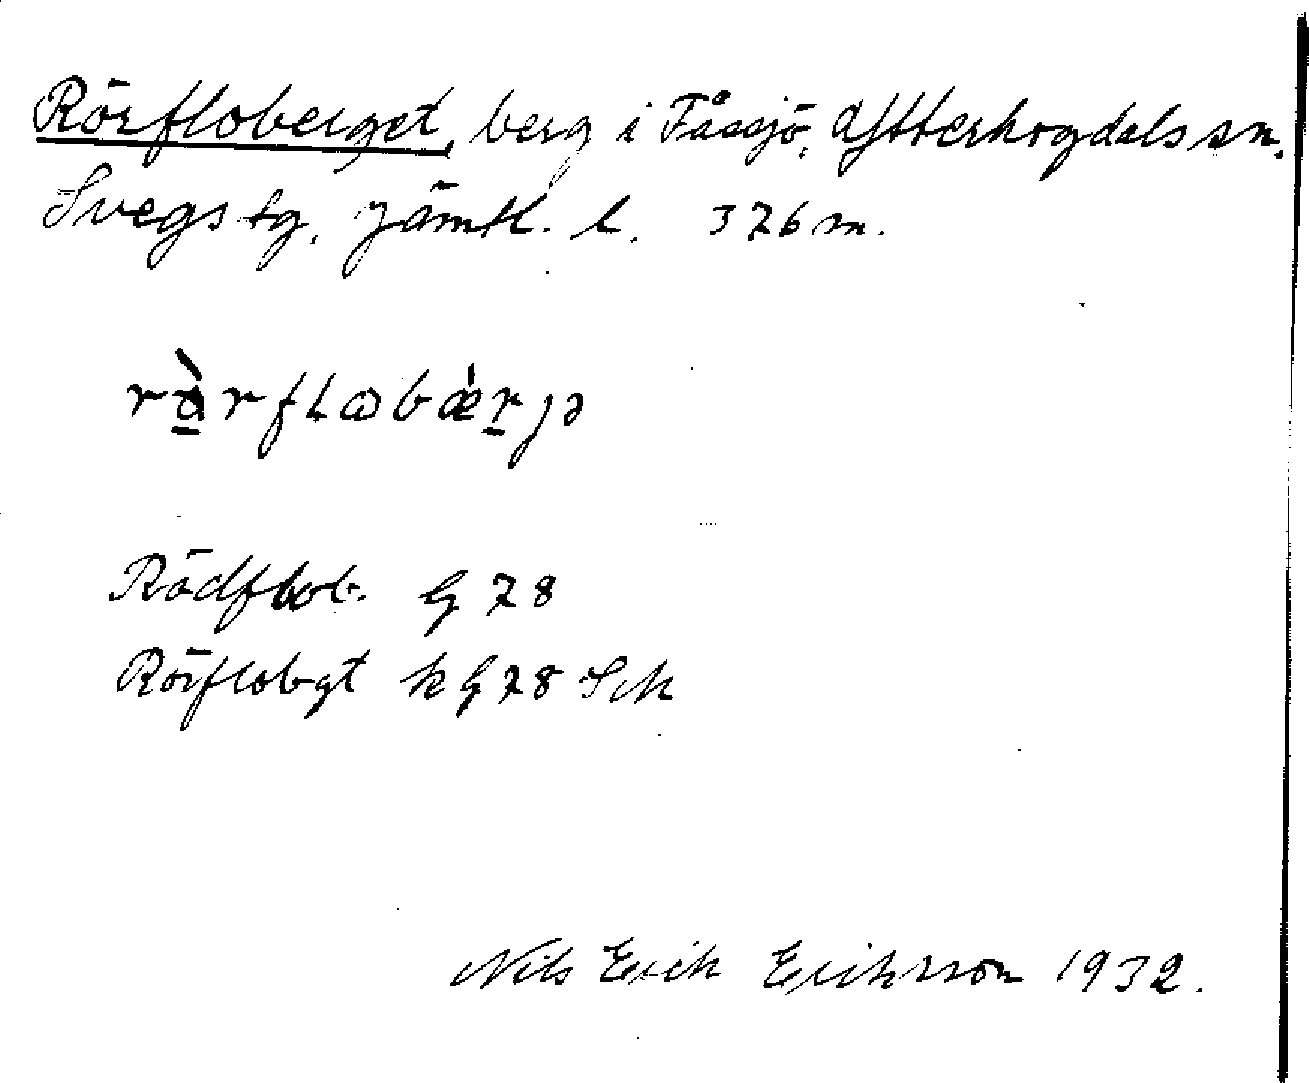 Rörfloberget, berg i Fåssjö, Ytterhogdals sn.
Svegs tg. Jämtl. l. 376 m.
Rödflob. G 78
Rörflobgt k G 78 Sck
Nils Erik Eriksson 1932.